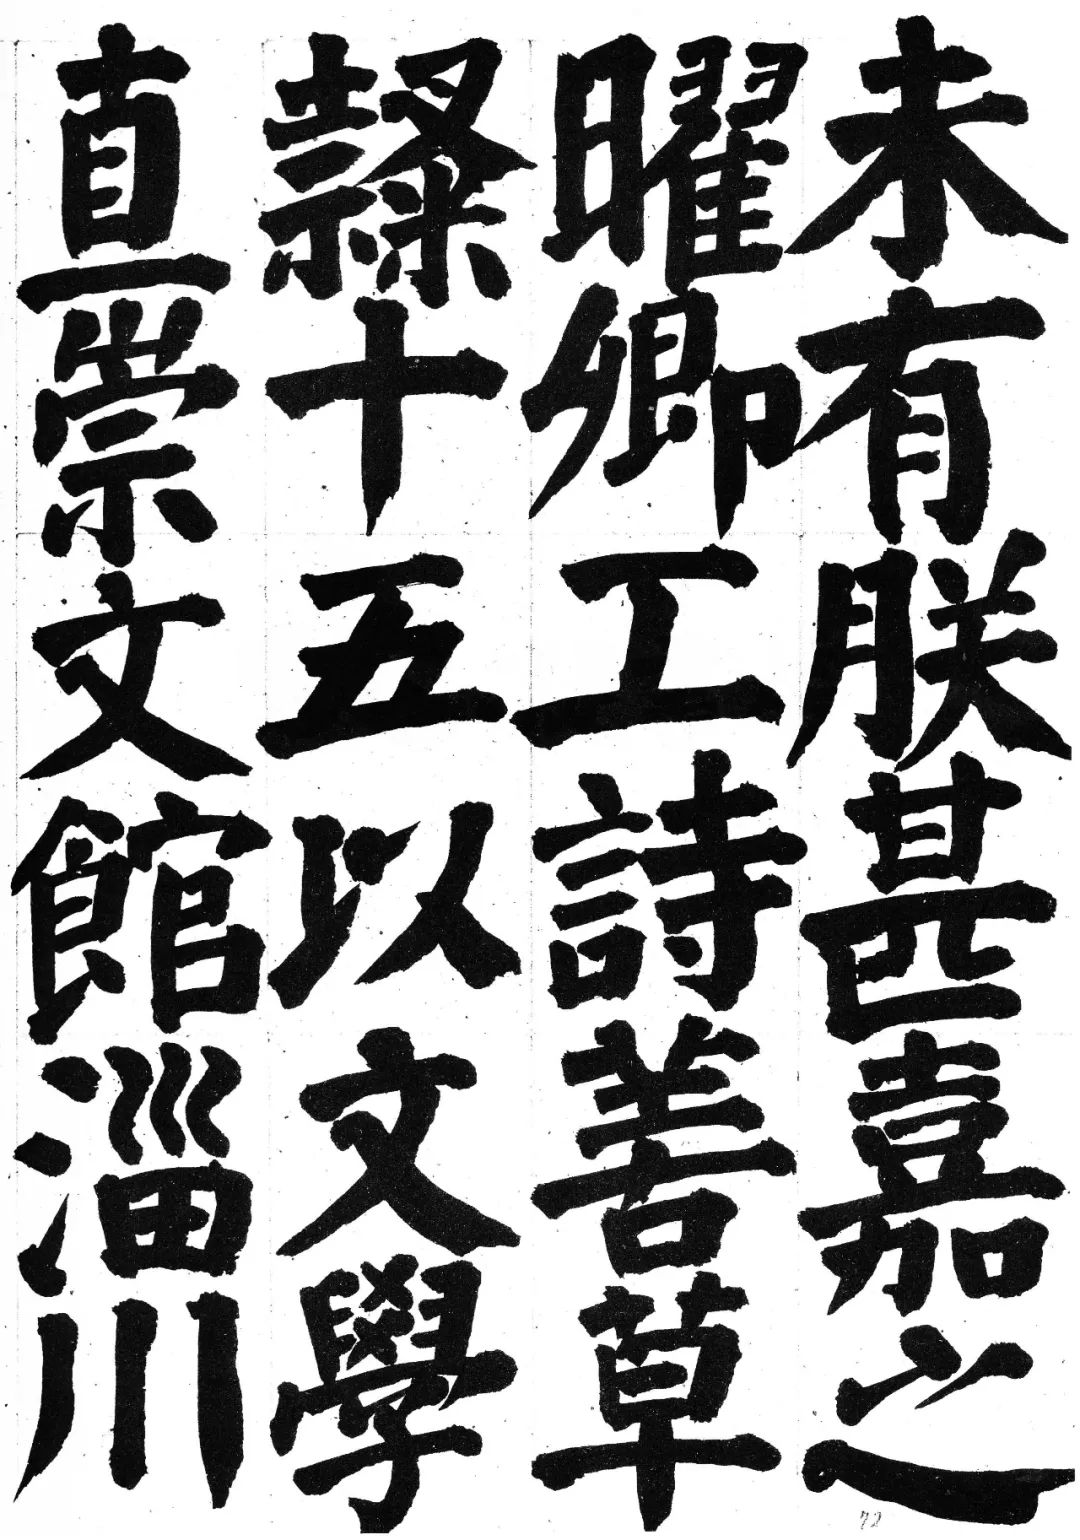 未有朕甚嘉之
曜卿工詩善草
隸十五以文學
直崇文館淄川
72